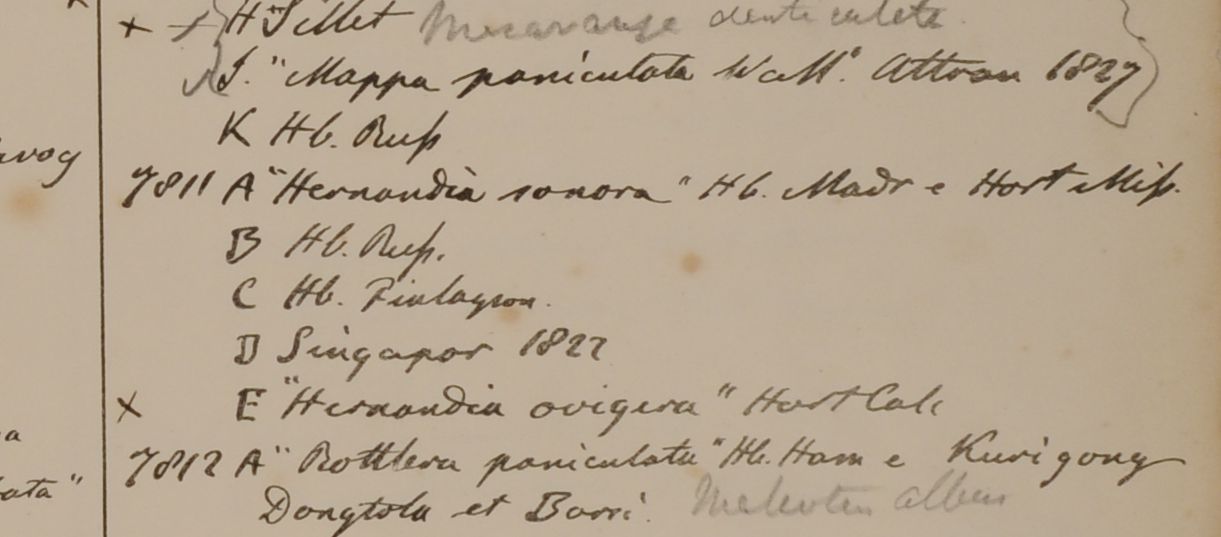 + + H Sillet Macaranga denticulata
J. "Mappa paniculata Wall". Attran 1827
K Hb. Russ
avog
7811 A "Hernandia sonora" Hb. Madr e Hort Miss.
B Hb. Russ.
C Hb. Finlayson.
D Singapor 1822
x E "Hernandia ovigera" Hort Calc
a
7812 A "Rottlera paniculata" Hb. Ham e Kurigong
ata"
Dongtola et Borri. Mallotus albus